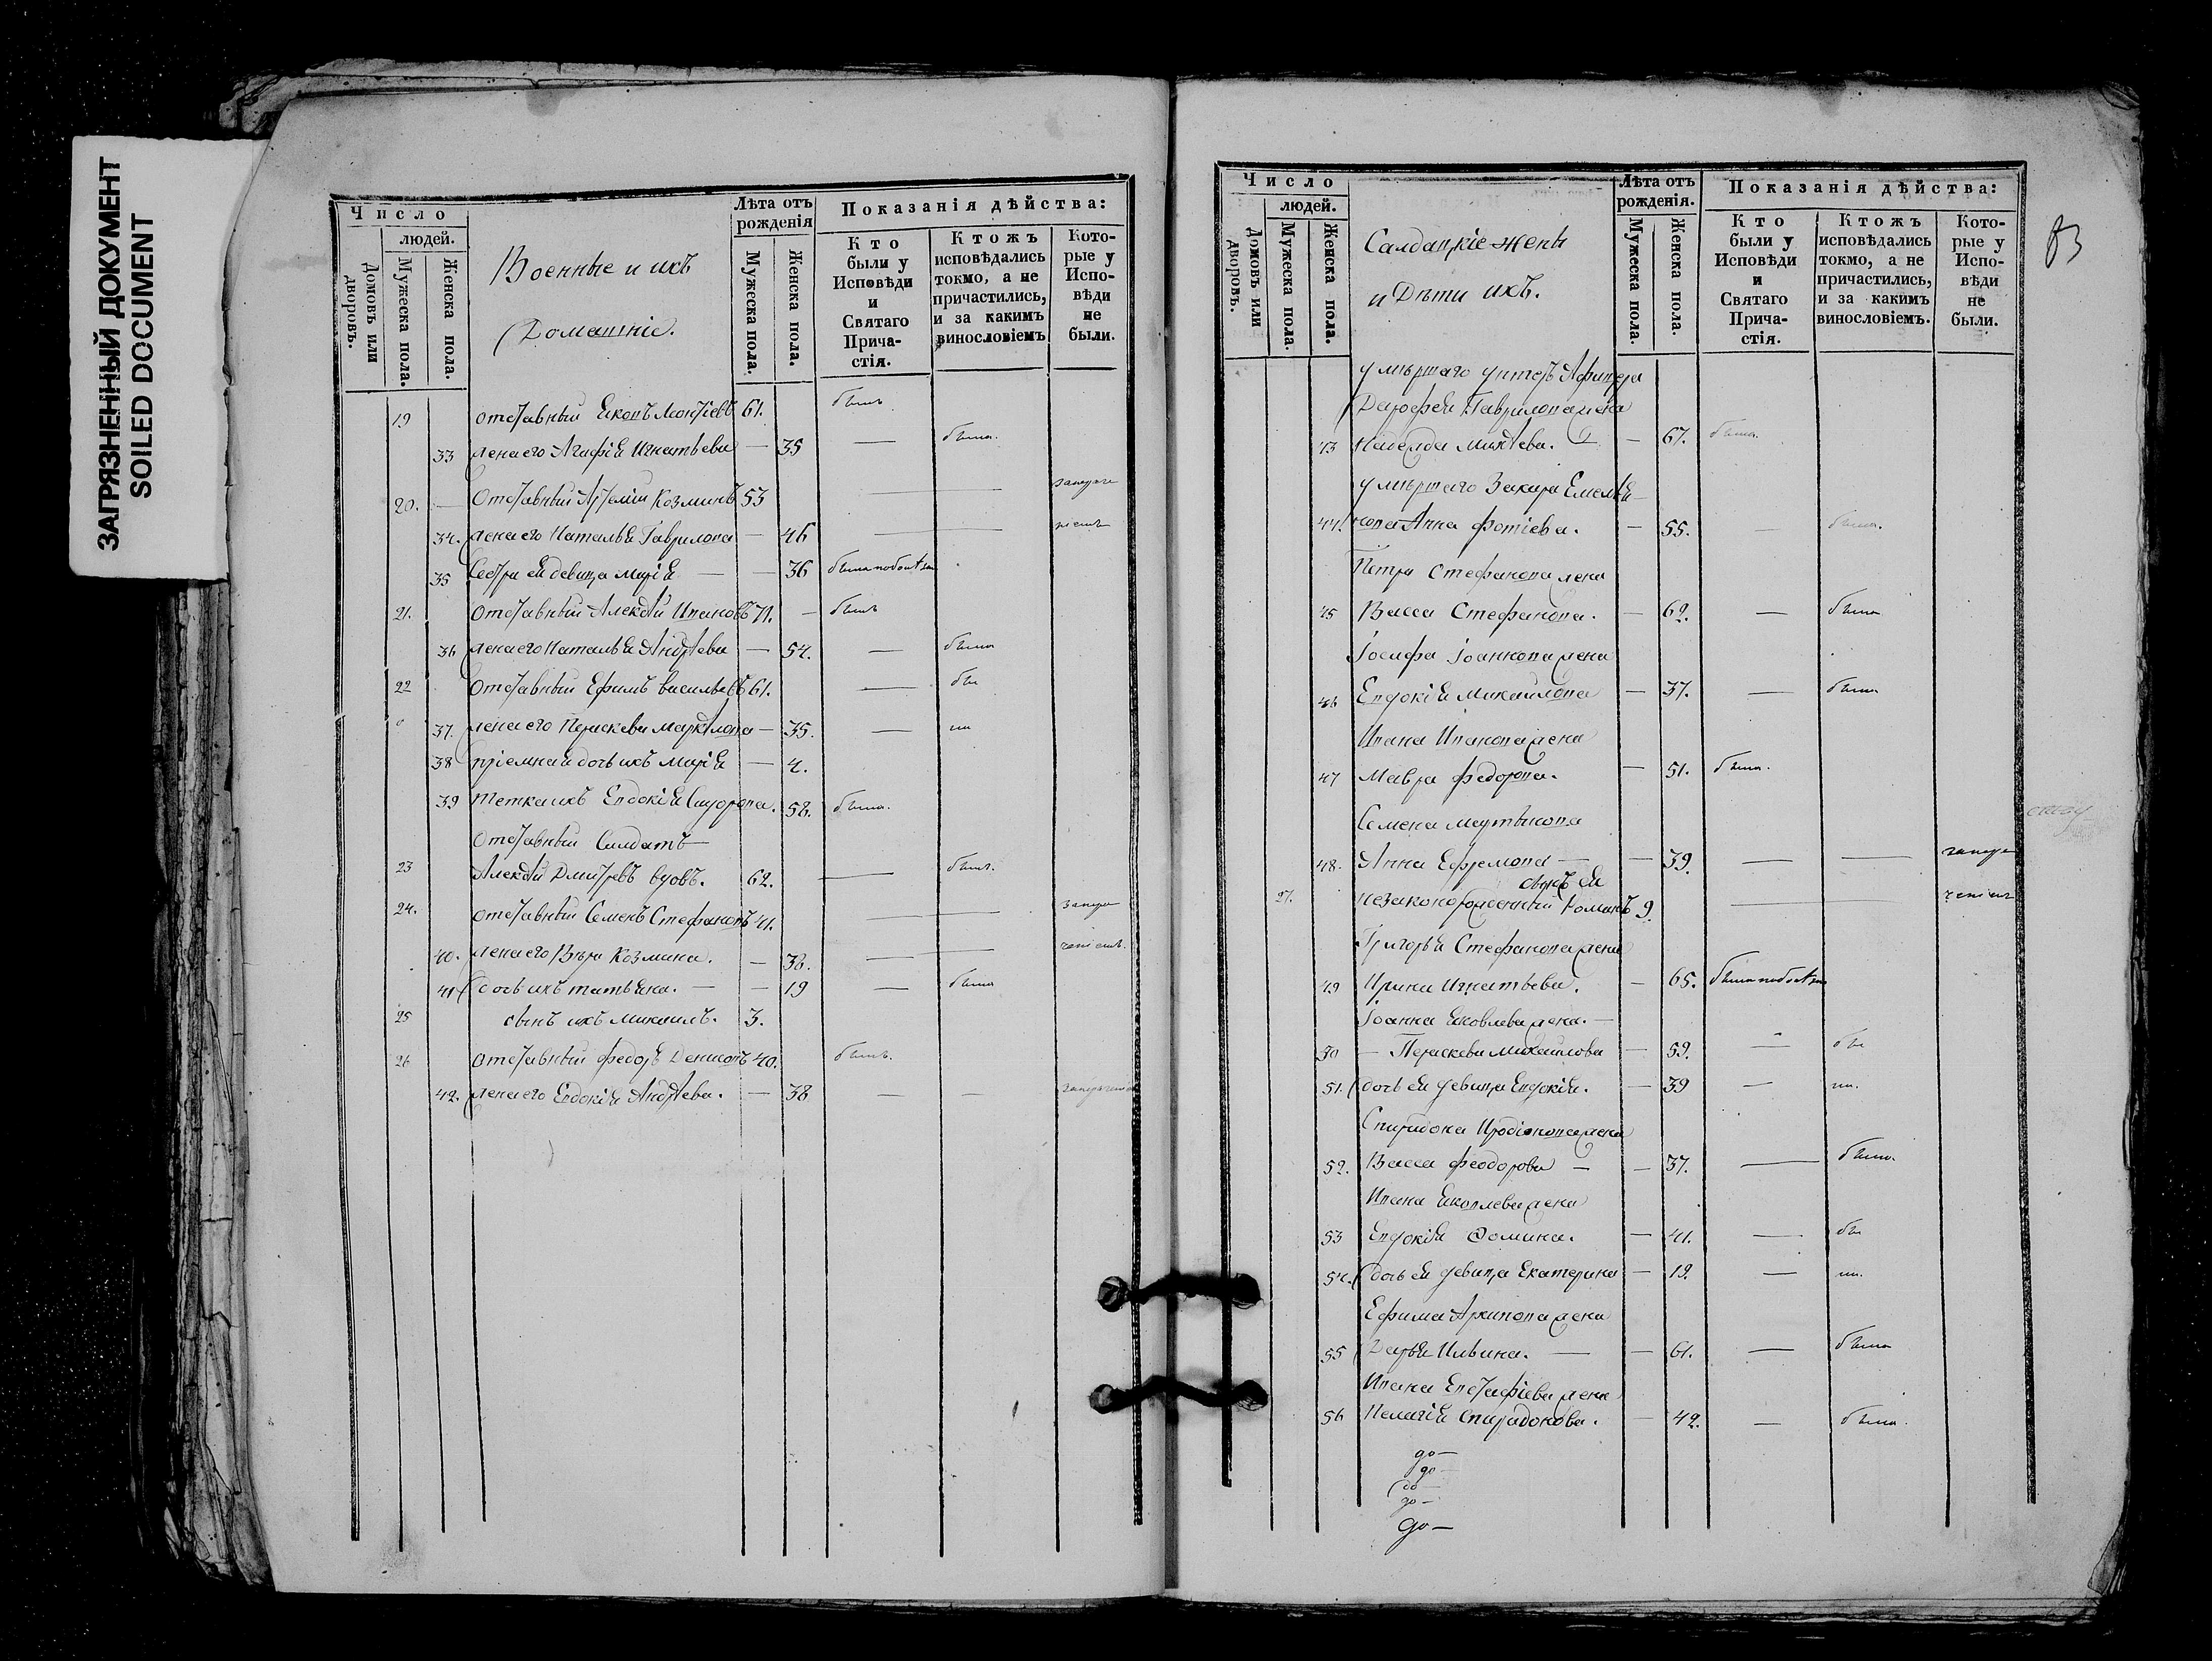 ЗАГРЯЗНЕННЫЙ ДОКУМЕНТ
SOILED DOCUMENT
Число
людей.
Домовъ или дворовъ.
Мужеска пола.
Женска пола.
Военные и ихъ
Домашніе.
Лѣта отъ рожденія
Мужеска пола.
Женска пола.
Показанія дѣйства:
Кто были у Исповѣди и Святаго Прича-стія.
Ктожъ исповѣдались токмо, а не причастились, и за какимъ винословіемъ
Кото-рые у Испо-вѣди не были.
19 отставный Яковъ 61. былъ
33 жена его Агафія Игнатьева — 35 — была.
20. — Отставный Артемій Козминъ 53 —
34. жена его Наталья Гаврилова — 46 —
35 Сестра ея девица Марія — — 36 была
21. Отставный Алексѣй Ивановъ 71. — былъ
36 жена его Наталья Андрѣева — 54. — была
22 Отставный Ефимъ Васильевъ 61. — бы
37. жена его Параскева — 35. — ли
38 пріемная дочь ихъ Марія — 4.
39 тетка ихъ Евдокія Сидорова. 58. была.
Отставный Салдатъ —
23 Алексѣй Дмитревъ вдовъ. 62. — былъ.
24. отставный Семенъ Стефановъ 41. —
40. жена его Вѣра Козмина. — 38. —
41 дочь ихъ татьяна. — — 19 — была
25 сынъ ихъ Михаилъ. 3.
26 отставный Федоръ Денисовъ 40. былъ.
42. жена его Евдокія Андрѣева. — 38 — —
Число
людей.
Домовъ или дворовъ.
Мужеска пола.
Женска пола.
Салдацкіе жены
и Дѣти ихъ.
Лѣта отъ рожденія.
Мужеска пола.
Женска пола.
Показанія дѣйства:
Кто были у Исповѣди и Святаго Прича-стія.
Ктожъ исповѣдались токмо, а не причастились, и за какимъ винословіемъ.
Кото-рые у Испо-вѣди не были.
83
умершаго унтеръ Афицера
Дарофея Гаврилова жена
43 Надежда — 67. была.
умершаго Захара Емелья
44. нова Анна Фотіева. — 55. — была.
Петра Стефанова жена
45 Васса Стефанова. — 62. — была
Іосифа Іоаннова жена
46 Евдокія Михаилова — 37. — была
Ивана Иванова жена
47 Мавра Федорова. — 51. была.
Семена
48. Анна Ефремова — — 39. — —
сынъ ея
27. незаконорожденный Романъ 9. —
Григорья Стефанова жена
49 Ирина Игнатьева. — 65. была
Іоанна Яковлева жена. —
50 — Параскева Михайлова — 59. — бы
51. дочь ея девица Евдокія. — 39 — ли.
Спиридона Иродіонова жена
52. Васса Феодорова — — 37. — была.
Ивана Яковлева жена
53 Евдокія Фомина. — 41. — бы
54. дочь ея девица Екатерина — 19. — ли.
Ефима Архипова жена
55 Дарья Ильина. — — 61. — была
Ивана Евстафіева жена
56 Пелагія Спиридонова. — 42. — была.
до —
до —
до —
до —
до —